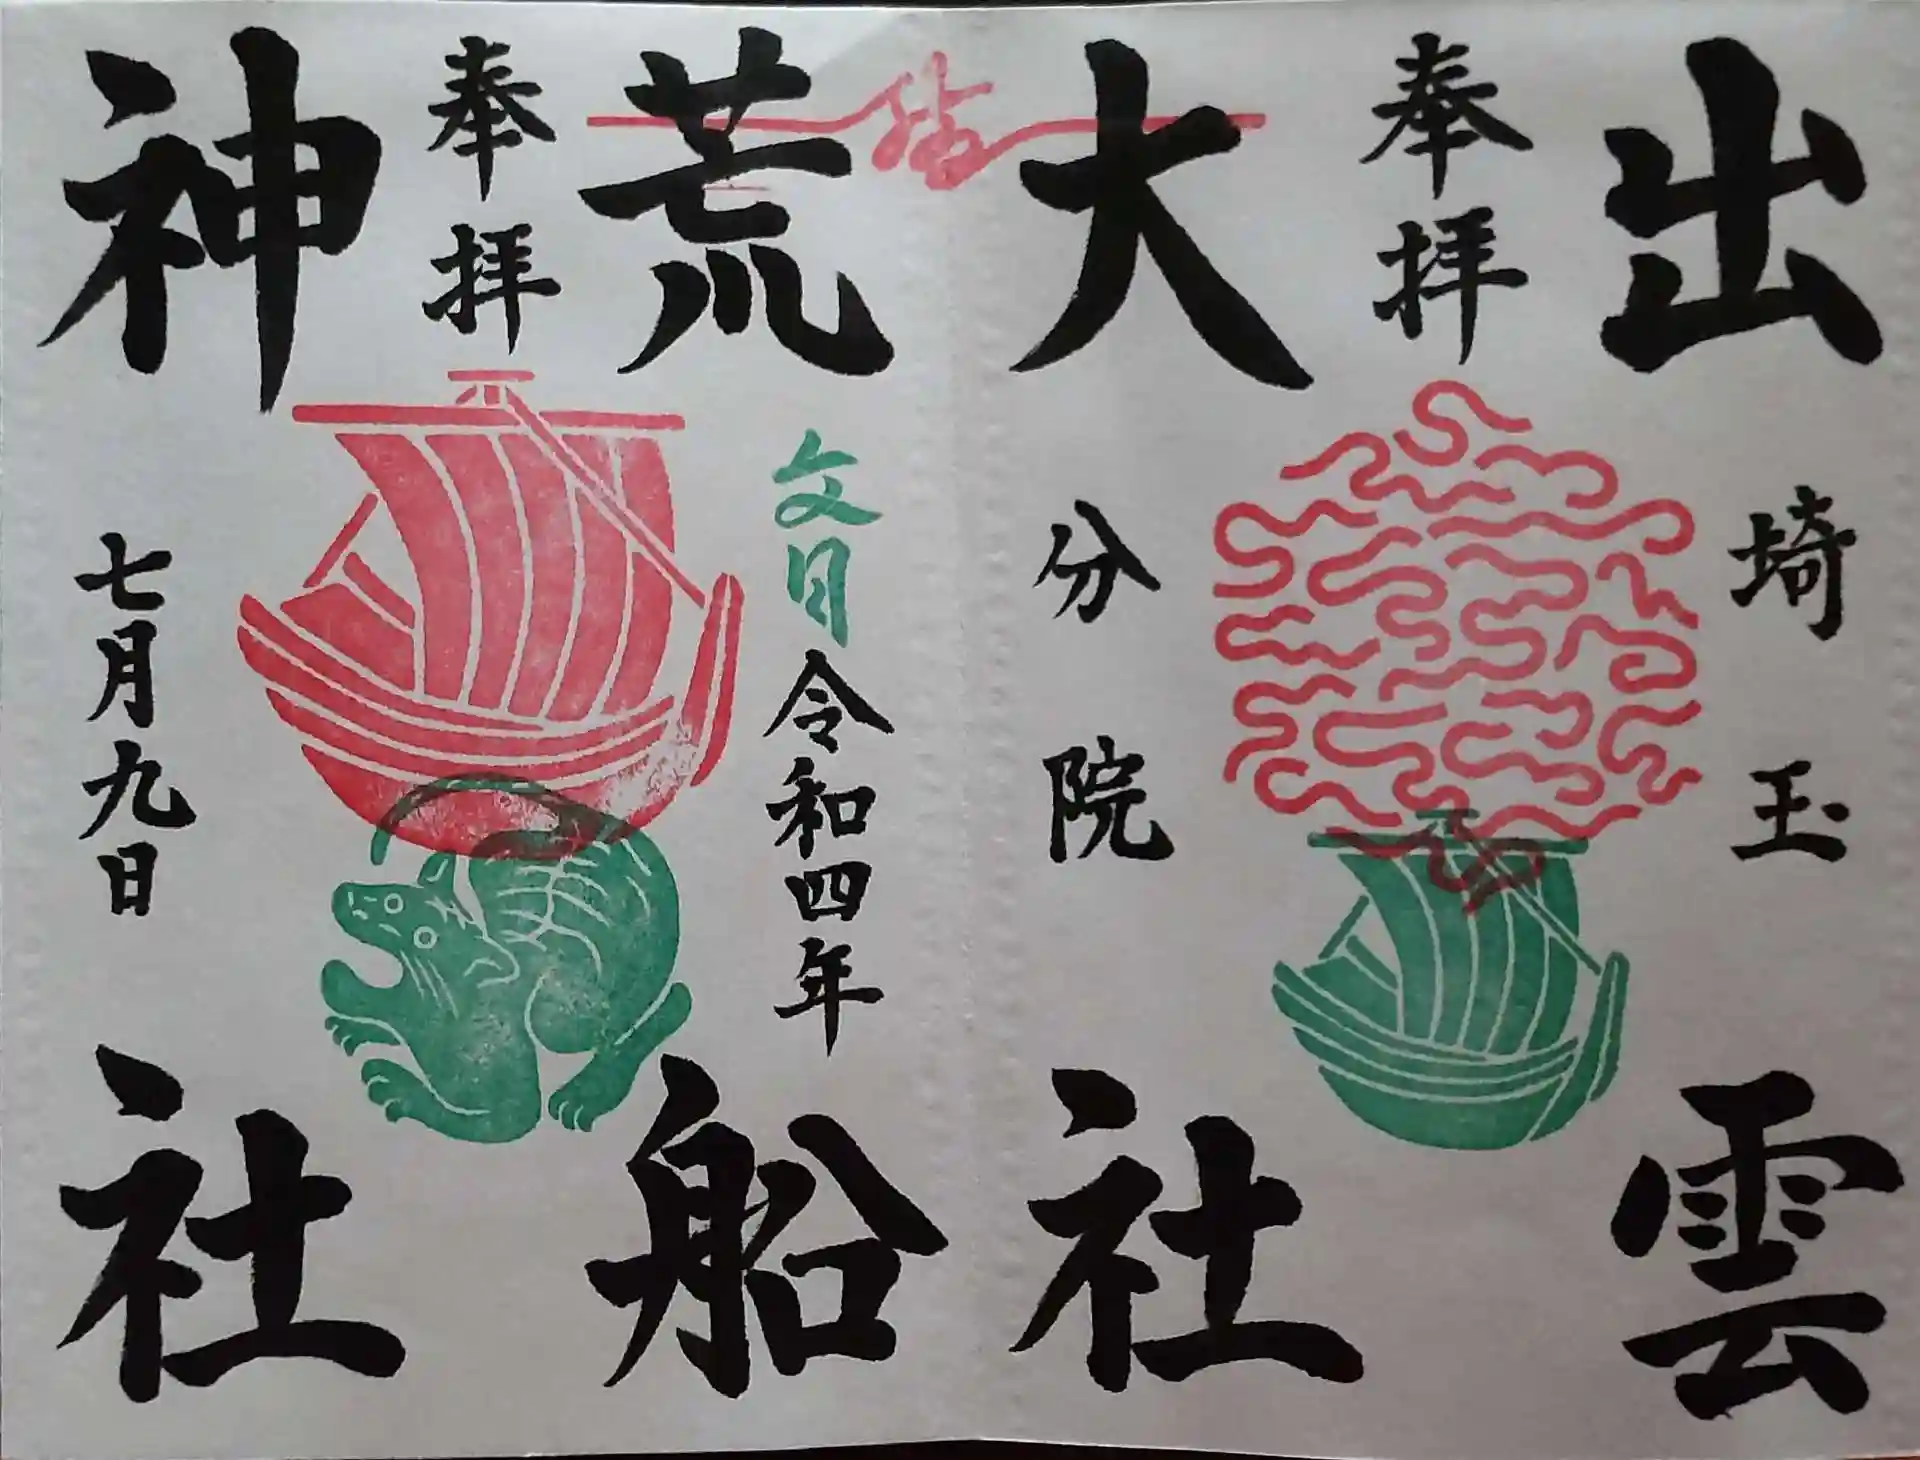 出雲
奉拝
埼玉
大社
分院
結
荒船
奉拝
文月
令和四年
神社
七月九日